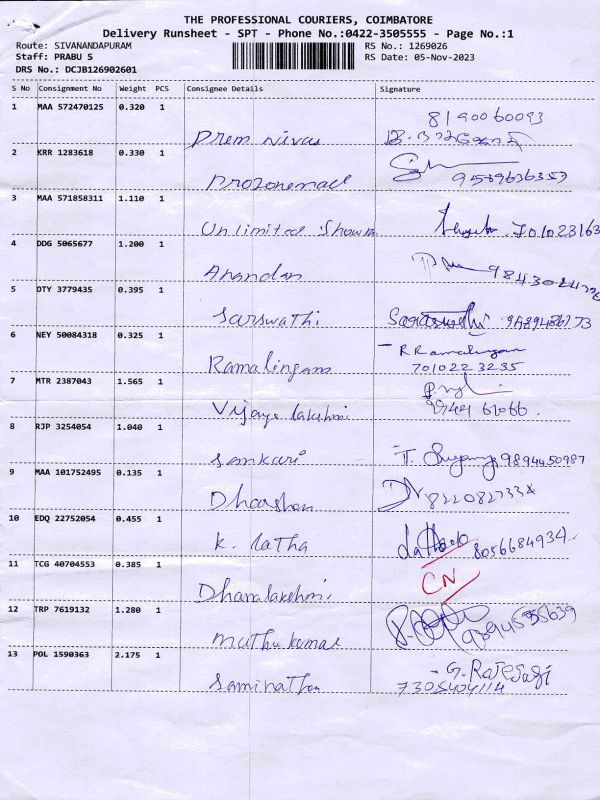 THE PROFESSIONAL COURIERS, COIMBATORE
Delivery Runsheet - SPT - Phone No.:0422-3505555 - Page No.:1
Route: SIVANANDAPURAM RS No.: 1269026
Staff: PRABU S RS Date: 05-Nov-2023
DRS No.: DCJB126902601
S No Consignment No Weight PCS Consignee Details Signature
1 MAA 572470125 0.320 1
8190060093
Prem Nivas
2 KRR 1283618 0.330 1
3 MAA 571858311 1.110 1
Unlimited
4 DDG 5065677 1.200 1
Anandan
5 OTY 3779435 0.395 1
Sarswathi Saraswathi
6 NEY 50084318 0.325 1
Ramalingam R Ramalingam
701022 3235
7 MTR 2387043 1.565 1
Vijaya lakshmi
8 RJP 3254054 1.040 1
Sankari 9894450987
9 MAA 101752495 0.135 1
Dharshan
10 EDQ 22752054 0.455 1
K. Latha 8056684934
11 TCG 40704553 0.385 1
CN
Dhanalakshmi
12 TRP 7619132 1.280 1
Muthu kumar
13 POL 1590363 2.175 1
Saminathan 7305404114